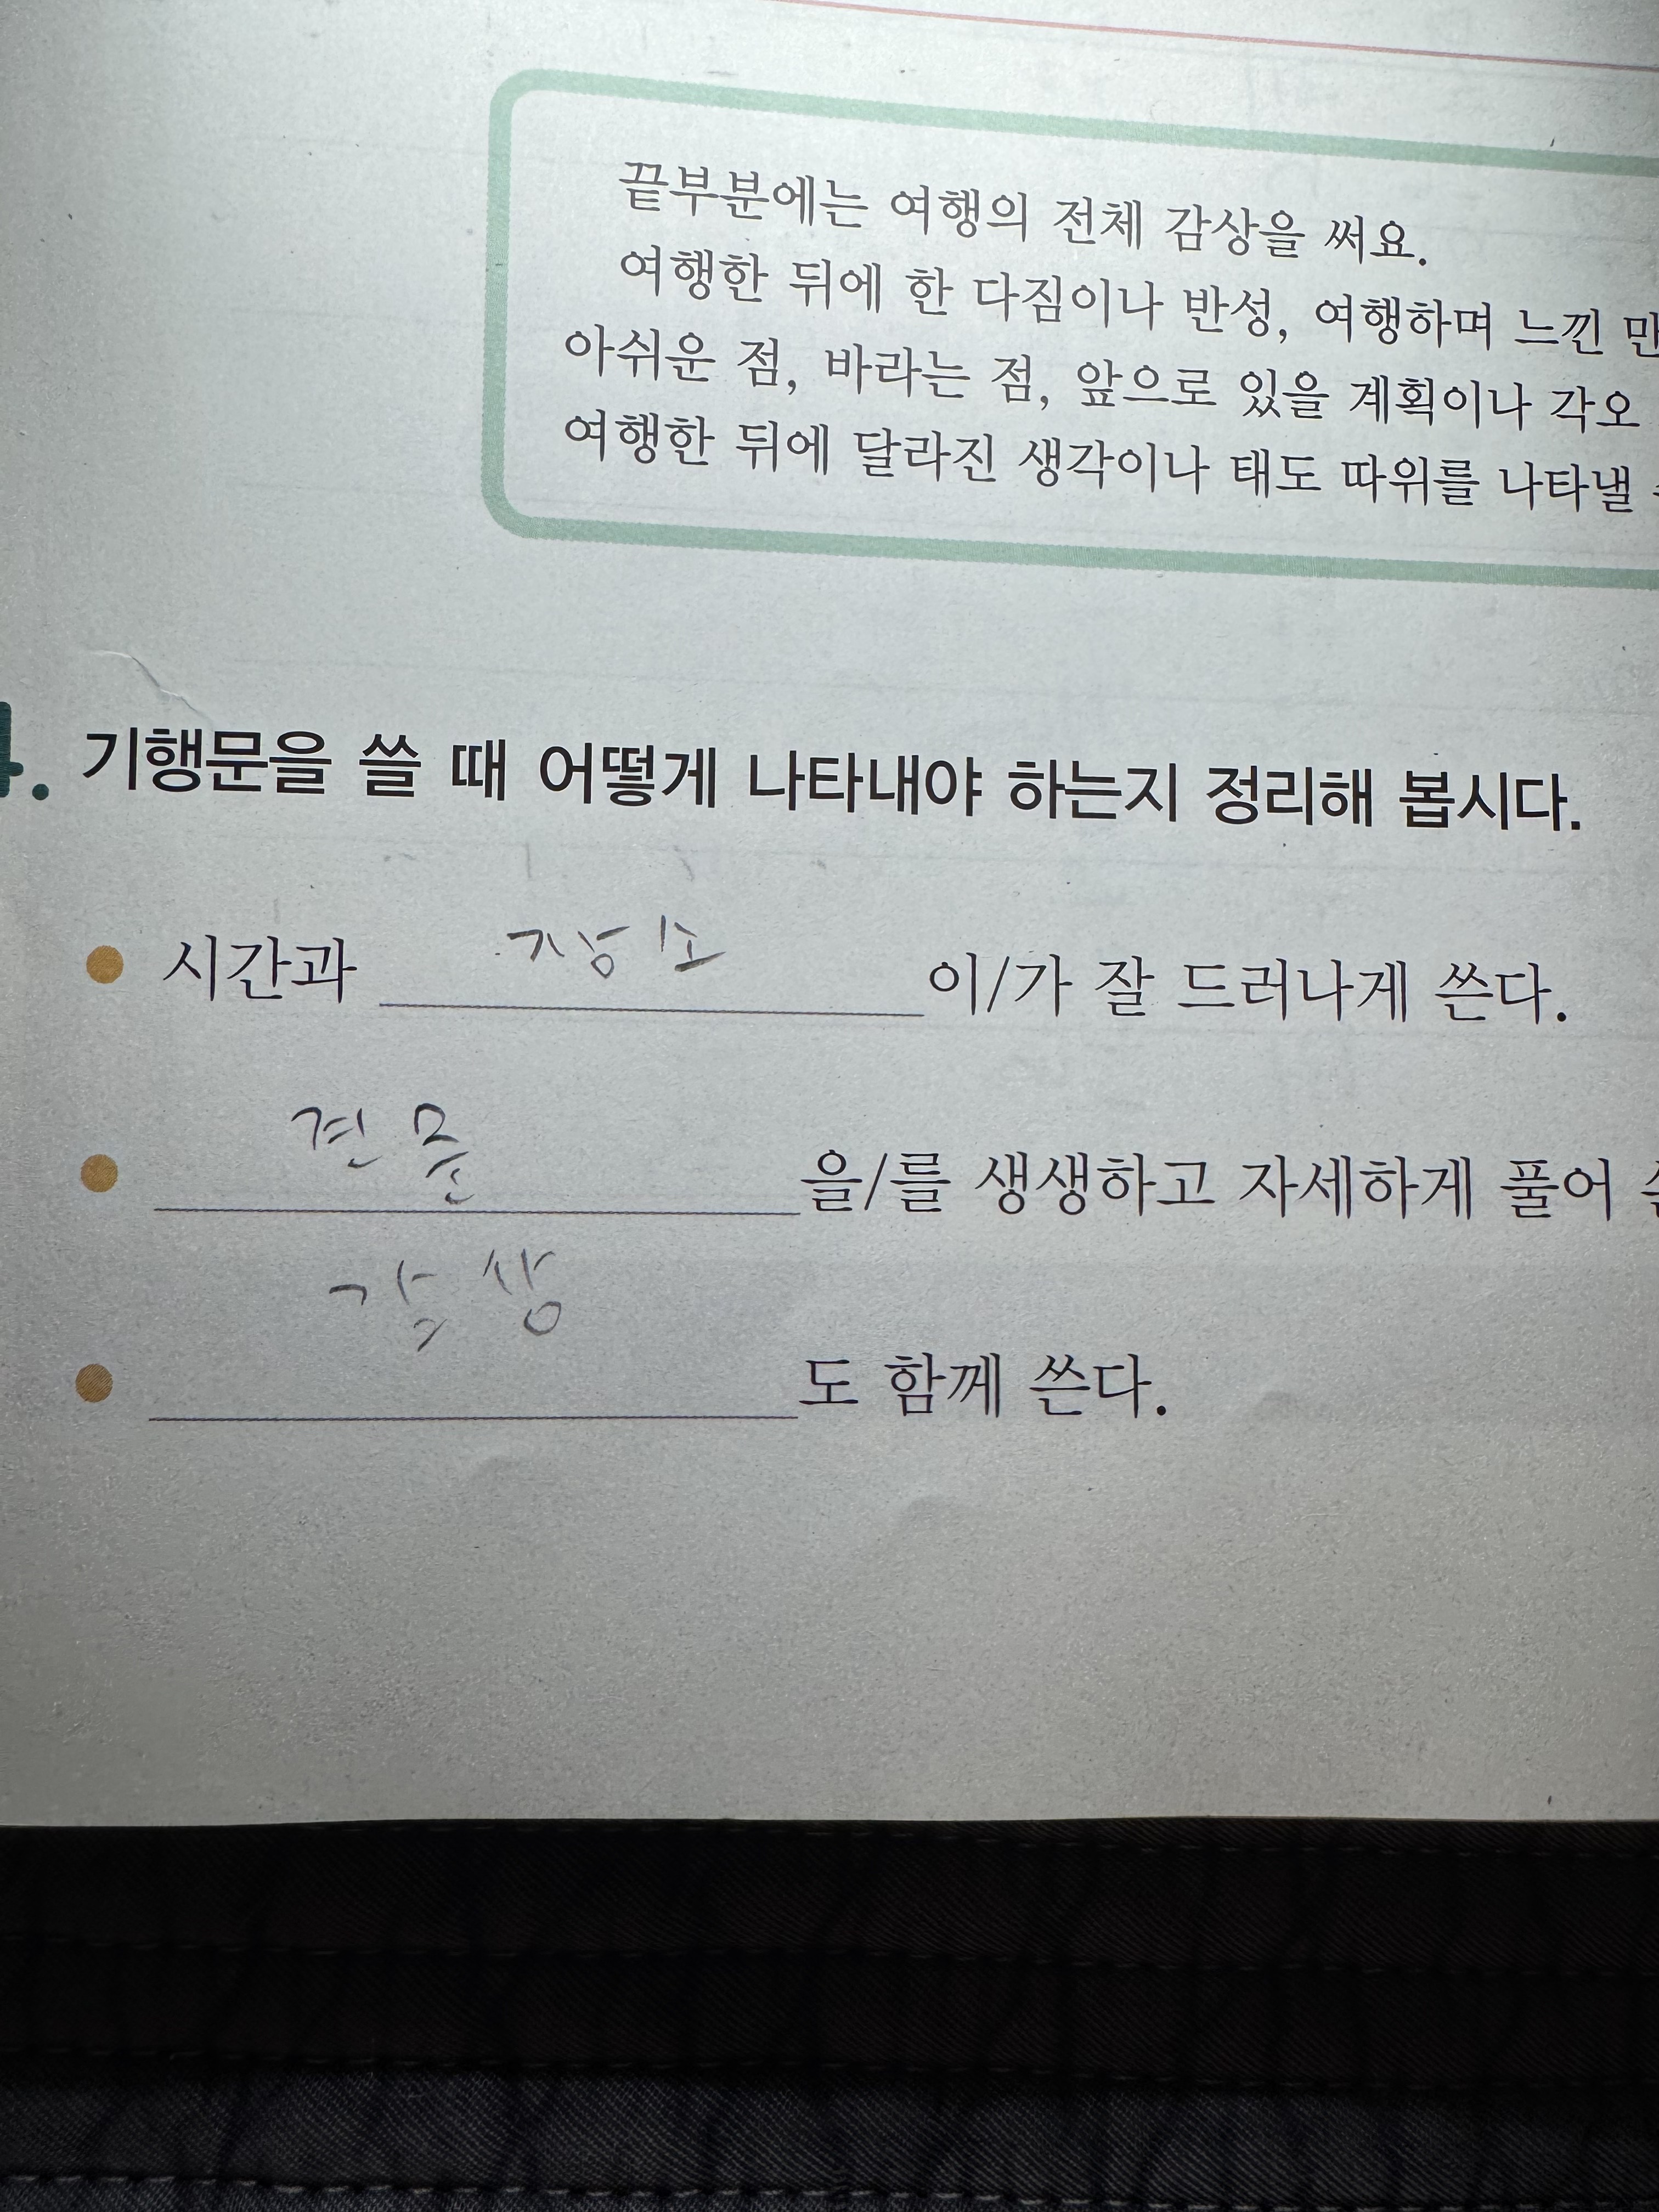 끝부분에는 여행의 전체 감상을 써요.
여행한 뒤에 한 다짐이나 반성, 여행하며 느낀
아쉬운 점, 바라는 점, 앞으로 있을 계획이나 각오
여행한 뒤에 달라진 생각이나 태도 따위를 나타낼
4. 기행문을 쓸 때 어떻게 나타내야 하는지 정리해 봅시다.
시간과 장소 이/가 잘 드러나게 쓴다.
견문 을/를 생생하고 자세하게 풀어
감상
도 함께 쓴다.